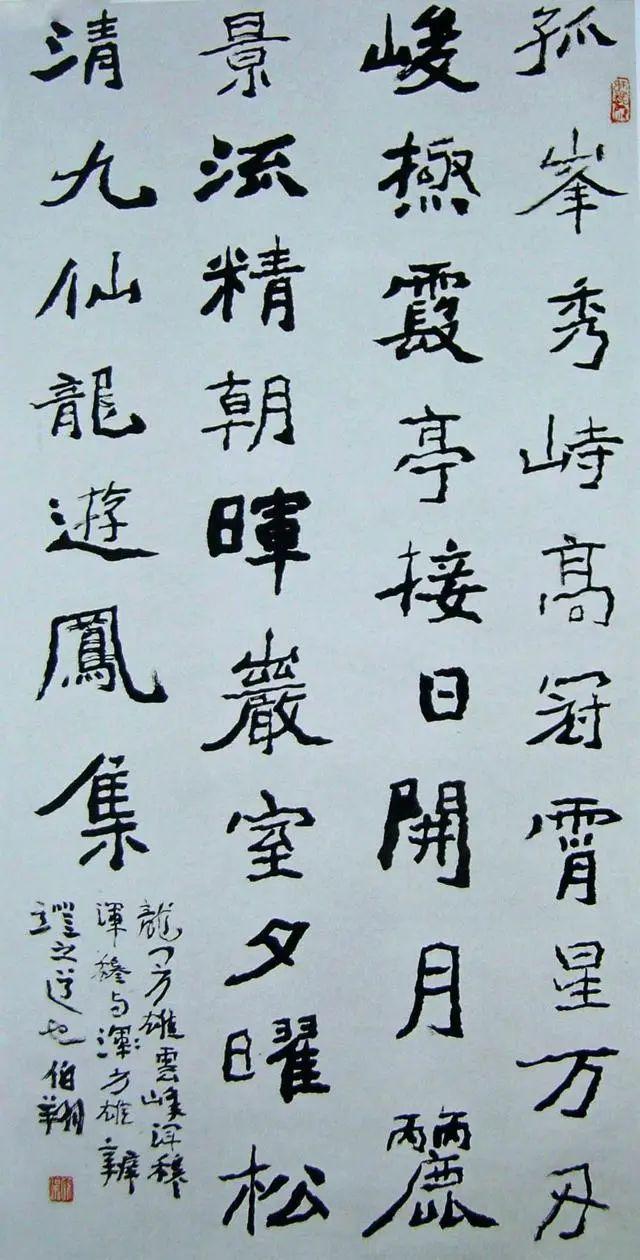 孤峯秀峙高冠霄星万刃
峻極霞亭接日開月麗
景流精朝暉巖室夕曜松
清九仙龍遊鳳集
龍门方雄雲峰渾穆
渾穆与方雄辯
證之道也伯翔